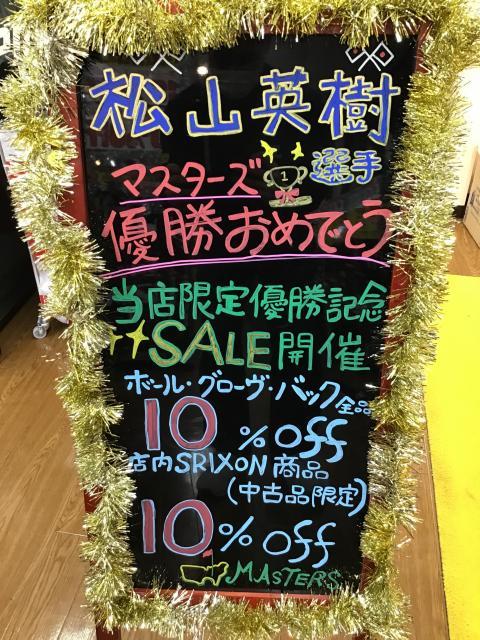 松山英樹
選手
マスターズ
1
優勝おめでとう
当店限定優勝記念
SALE開催
ボール・グローヴ・バック全品
10%off
店内SRIXON商品
(中古品限定)
10%off
MASTERS